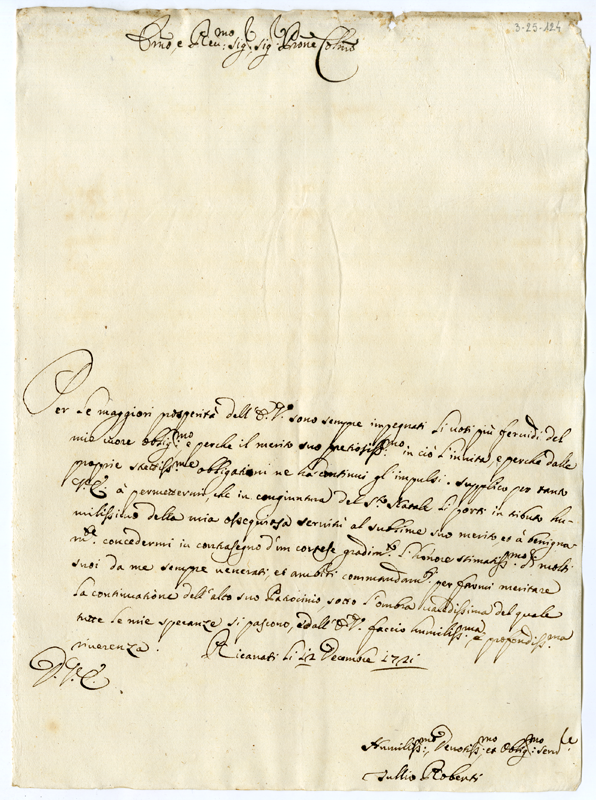 3-25-124
Em̃o e Reu:mo Sig:r Sig:r Prone Col:mo
Per le maggiori prosperità dell'E.V. sono sempre impegnati li voti più feruidi del
mio cuore oblig:mo e perche il merito suo pretiosiss:mo in ciò l'inuita, e perche dalle
proprie strettiss:me obligationi ne ha continui gl'impulsi. Supplico per tanto
V.E. à permettermi, che in congiuntura del S:to Natale li porti in tributo hu-
milissimo della mia ossequiosa seruitù al sublime suo merito et à benigna-
m:te concedermi in contrasegno d'un cortese gradim:to l'honore stimatiss:mo di molti
suoi da me sempre uenerati, et ambiti commandam:ti per farmi meritare
la continuatione dell'alto suo Patrocinio sotto l'ombra del quale
tutte le mie speranze si pascono, e dall'E.V. faccio humiliss:ma, e profondiss:ma
riuerenza. Ricanati li 12 Decembre 1721
D. V. E.
Humiliss:mo Deuotiss:mo et Oblig:mo Seru:re
Tullio Roberti